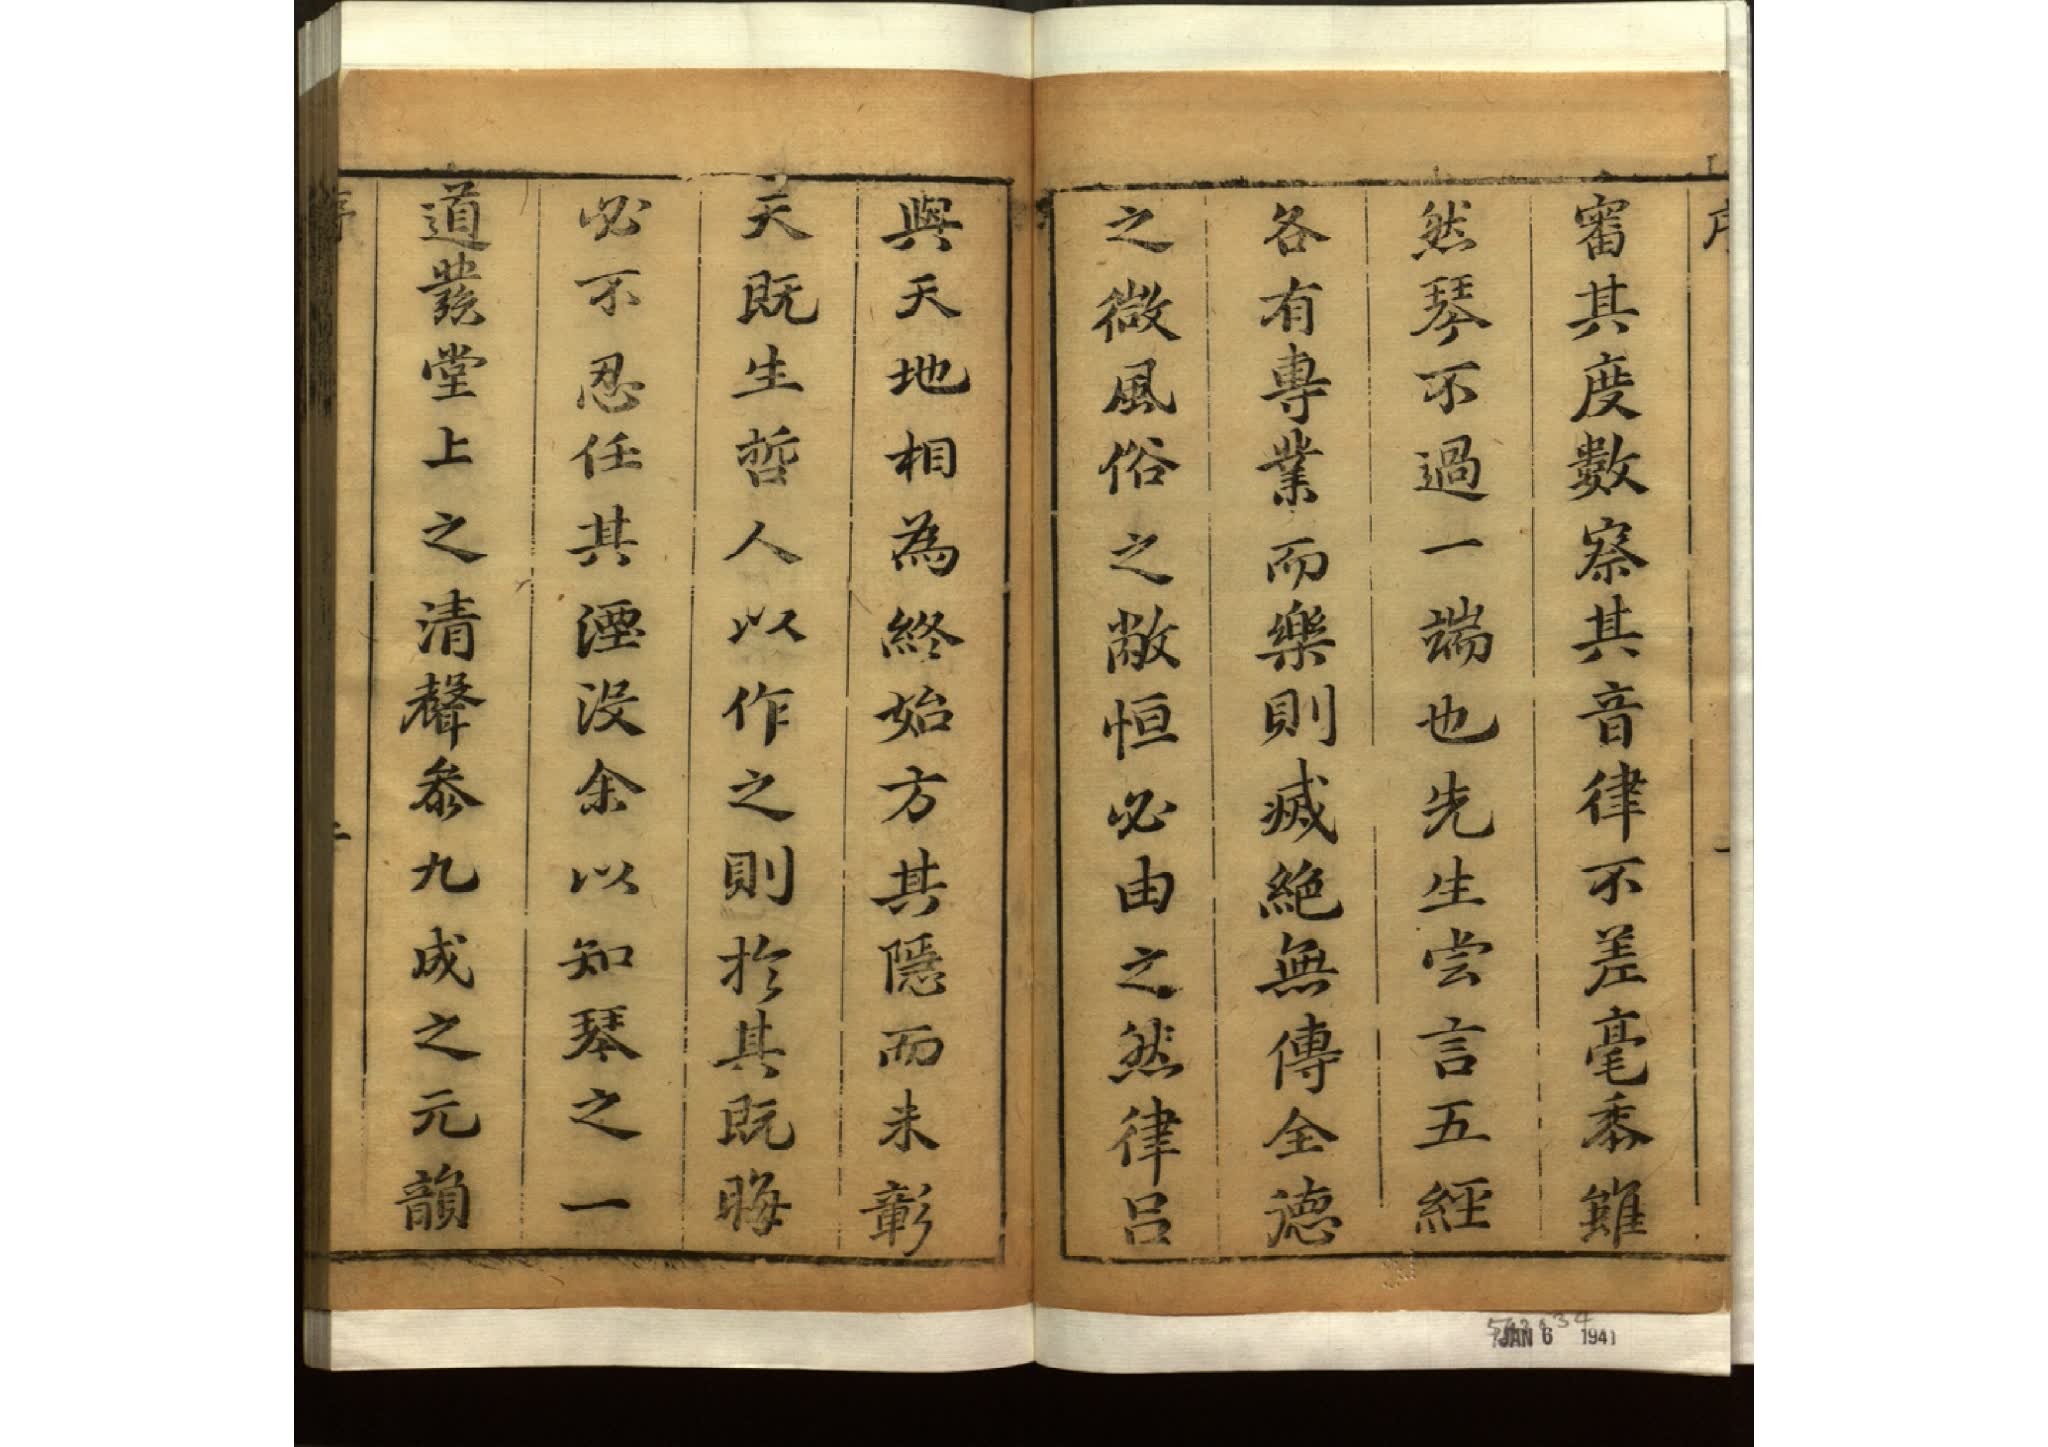 序
審其度數察其音律不差毫黍雖
然琴不過一端也先生尝言五經
各有專業而樂則滅絕無傳全德
之微風俗之敝恒必由之然律呂
與天地相為終始方其隱而未彰
天既生哲人以作之則於其既晦
必不忍任其湮沒余以知琴之一
道發堂上之清聲叅九成之元韻
序
二
JAN 6 1941